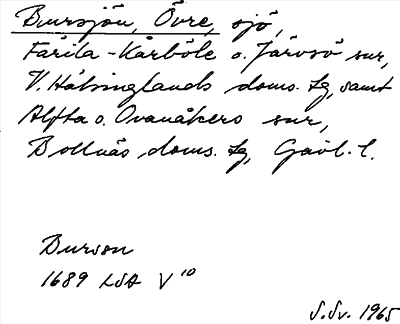 Bursjön, Övre, sjö,
Färila-Kårböle o. Järvsö sur,
V. Hälsinglands doms. lg, samt
Alfta o. Ovanåkers sur,
Bollnäs doms. lg, Gävl. l.
Bursön
1689 LSA V 10
S.Sv. 1965